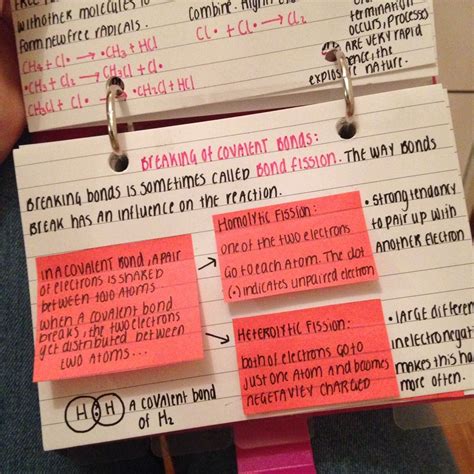 with other molecules to
form new free radicals.
CH4 + Cl• → •CH3 + HCl
•CH3 + Cl2 → CH3Cl + Cl•
CH3Cl + Cl• → •CH2Cl + HCl
combine.
Cl• + Cl• → Cl2
termination
occurs, Processes
are very rapid
hence, the
explosive nature.
Breaking of covalent bonds:
Breaking bonds is sometimes called Bond fission. The way Bonds
Break has an influence on the reaction.
In a covalent bond, a pair
of electrons is shared
between two atoms.
When a covalent bond
breaks, the two electrons
get distributed between
two atoms...
Homolytic Fission:
one of the two electrons
Go to each Atom. The dot
(•) indicates unpaired electron
• strong tendancy
to pair up with
another electron
Heterolytic Fission:
both of electrons go to
just one Atom and becomes
negetavley charged
• large differen
in electronegat
makes this ha
more often.
H • H
A covalent bond
of H2